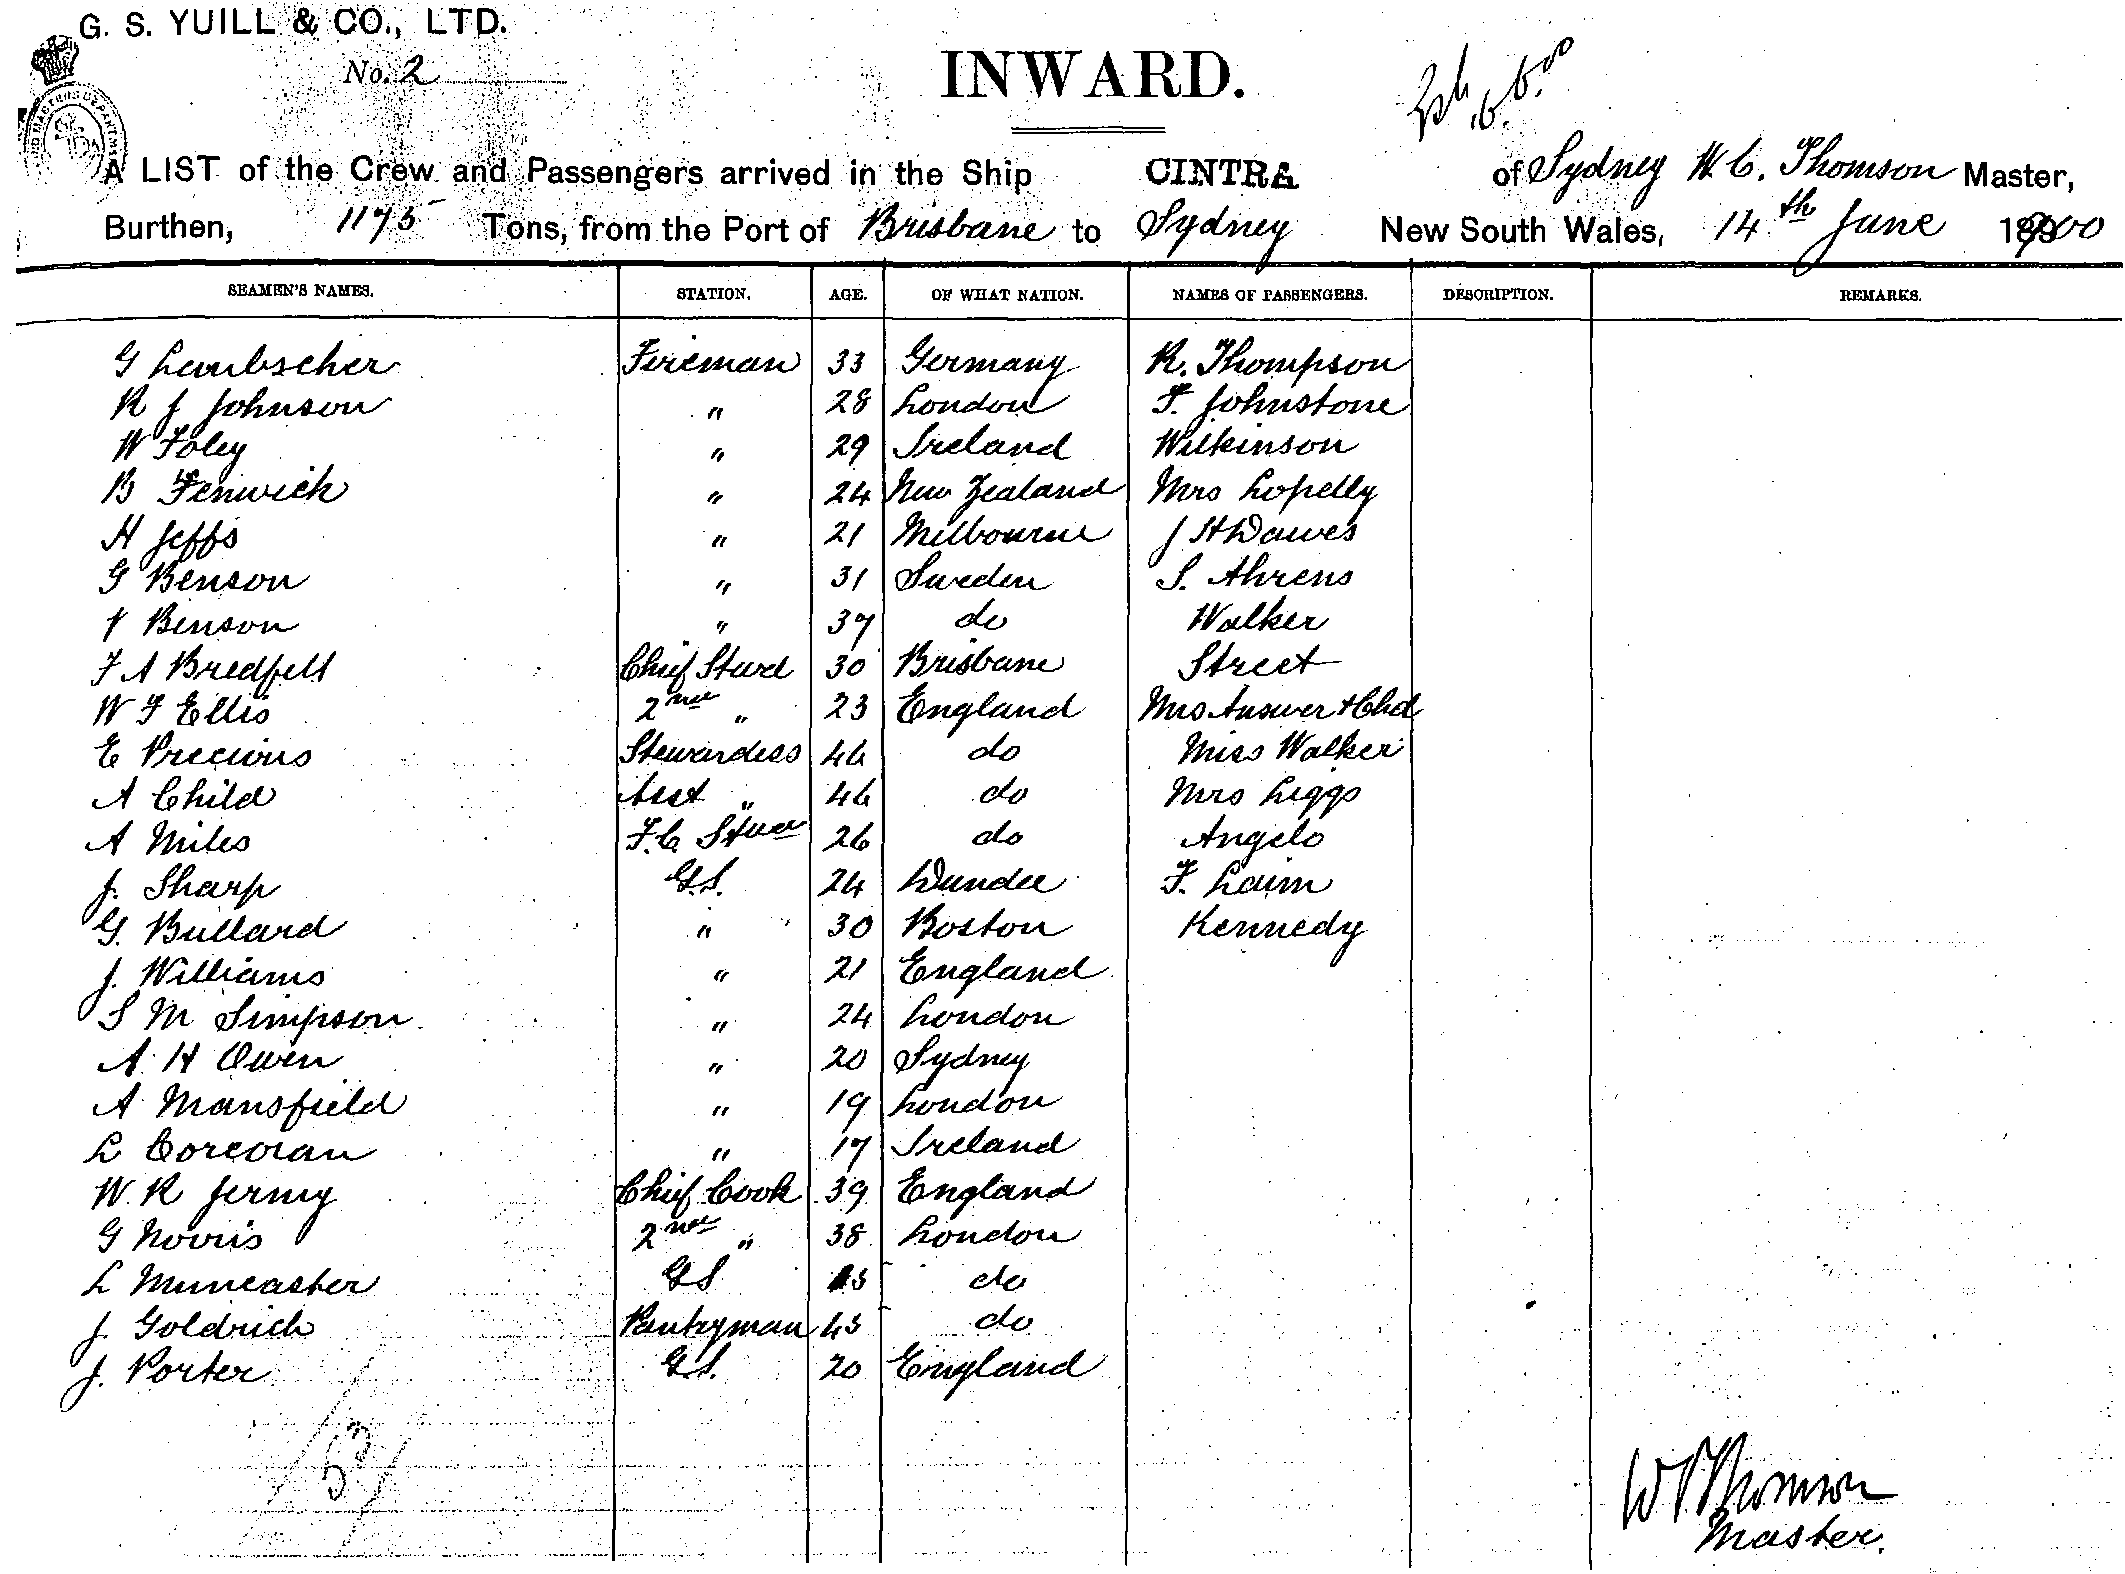 G. S. YUILL & CO., LTD.
No. 2
INWARD.
A LIST of the Crew and Passengers arrived in the Ship CINTRA of Sydney W C. Thomson Master,
Burthen, 1175 Tons, from the Port of Brisbane to Sydney New South Wales, 14th June 1900
SEAMEN'S NAMES. STATION. AGE. OF WHAT NATION. NAMES OF PASSENGERS. DESCRIPTION. REMARKS.
G Laubscher Fireman 33 Germany R. Thompson
R J Johnson " 28 London F. Johnstone
W Foley " 29 Ireland Wilkinson
B Fenwick " 24 New Zealand Mrs Lopelly
H Jeffs " 21 Melbourne J H Dawes
G Benson " 31 Sweden S. Ahrens
Benson " 37 do Walker
F A Bredfelt Chief Stwd 30 Brisbane Street
W F Ellis 2nd " 23 England Mrs Answer + Chd
E Precious Stewardess 46 do Miss Walker
A Child Asst " 46 do Mrs Liggs
A Miles F.C. Stwd 26 do Angelo
J. Sharp G.S. 24 Dundee F. Laim
G. Bullard " 30 Boston Kennedy
J. Williams " 21 England
S M Simpson " 24 London
A. H Owen " 20 Sydney
A Mansfield " 19 London
L Corcoran " 17 Ireland
W. R Jermy Chief Cook 39 England
G Norris 2nd " 38 London
L Muncaster GS do
J. Goldrich Pantryman 43 do
J. Porter G.S. 20 England
53
W C Thomson
Master.